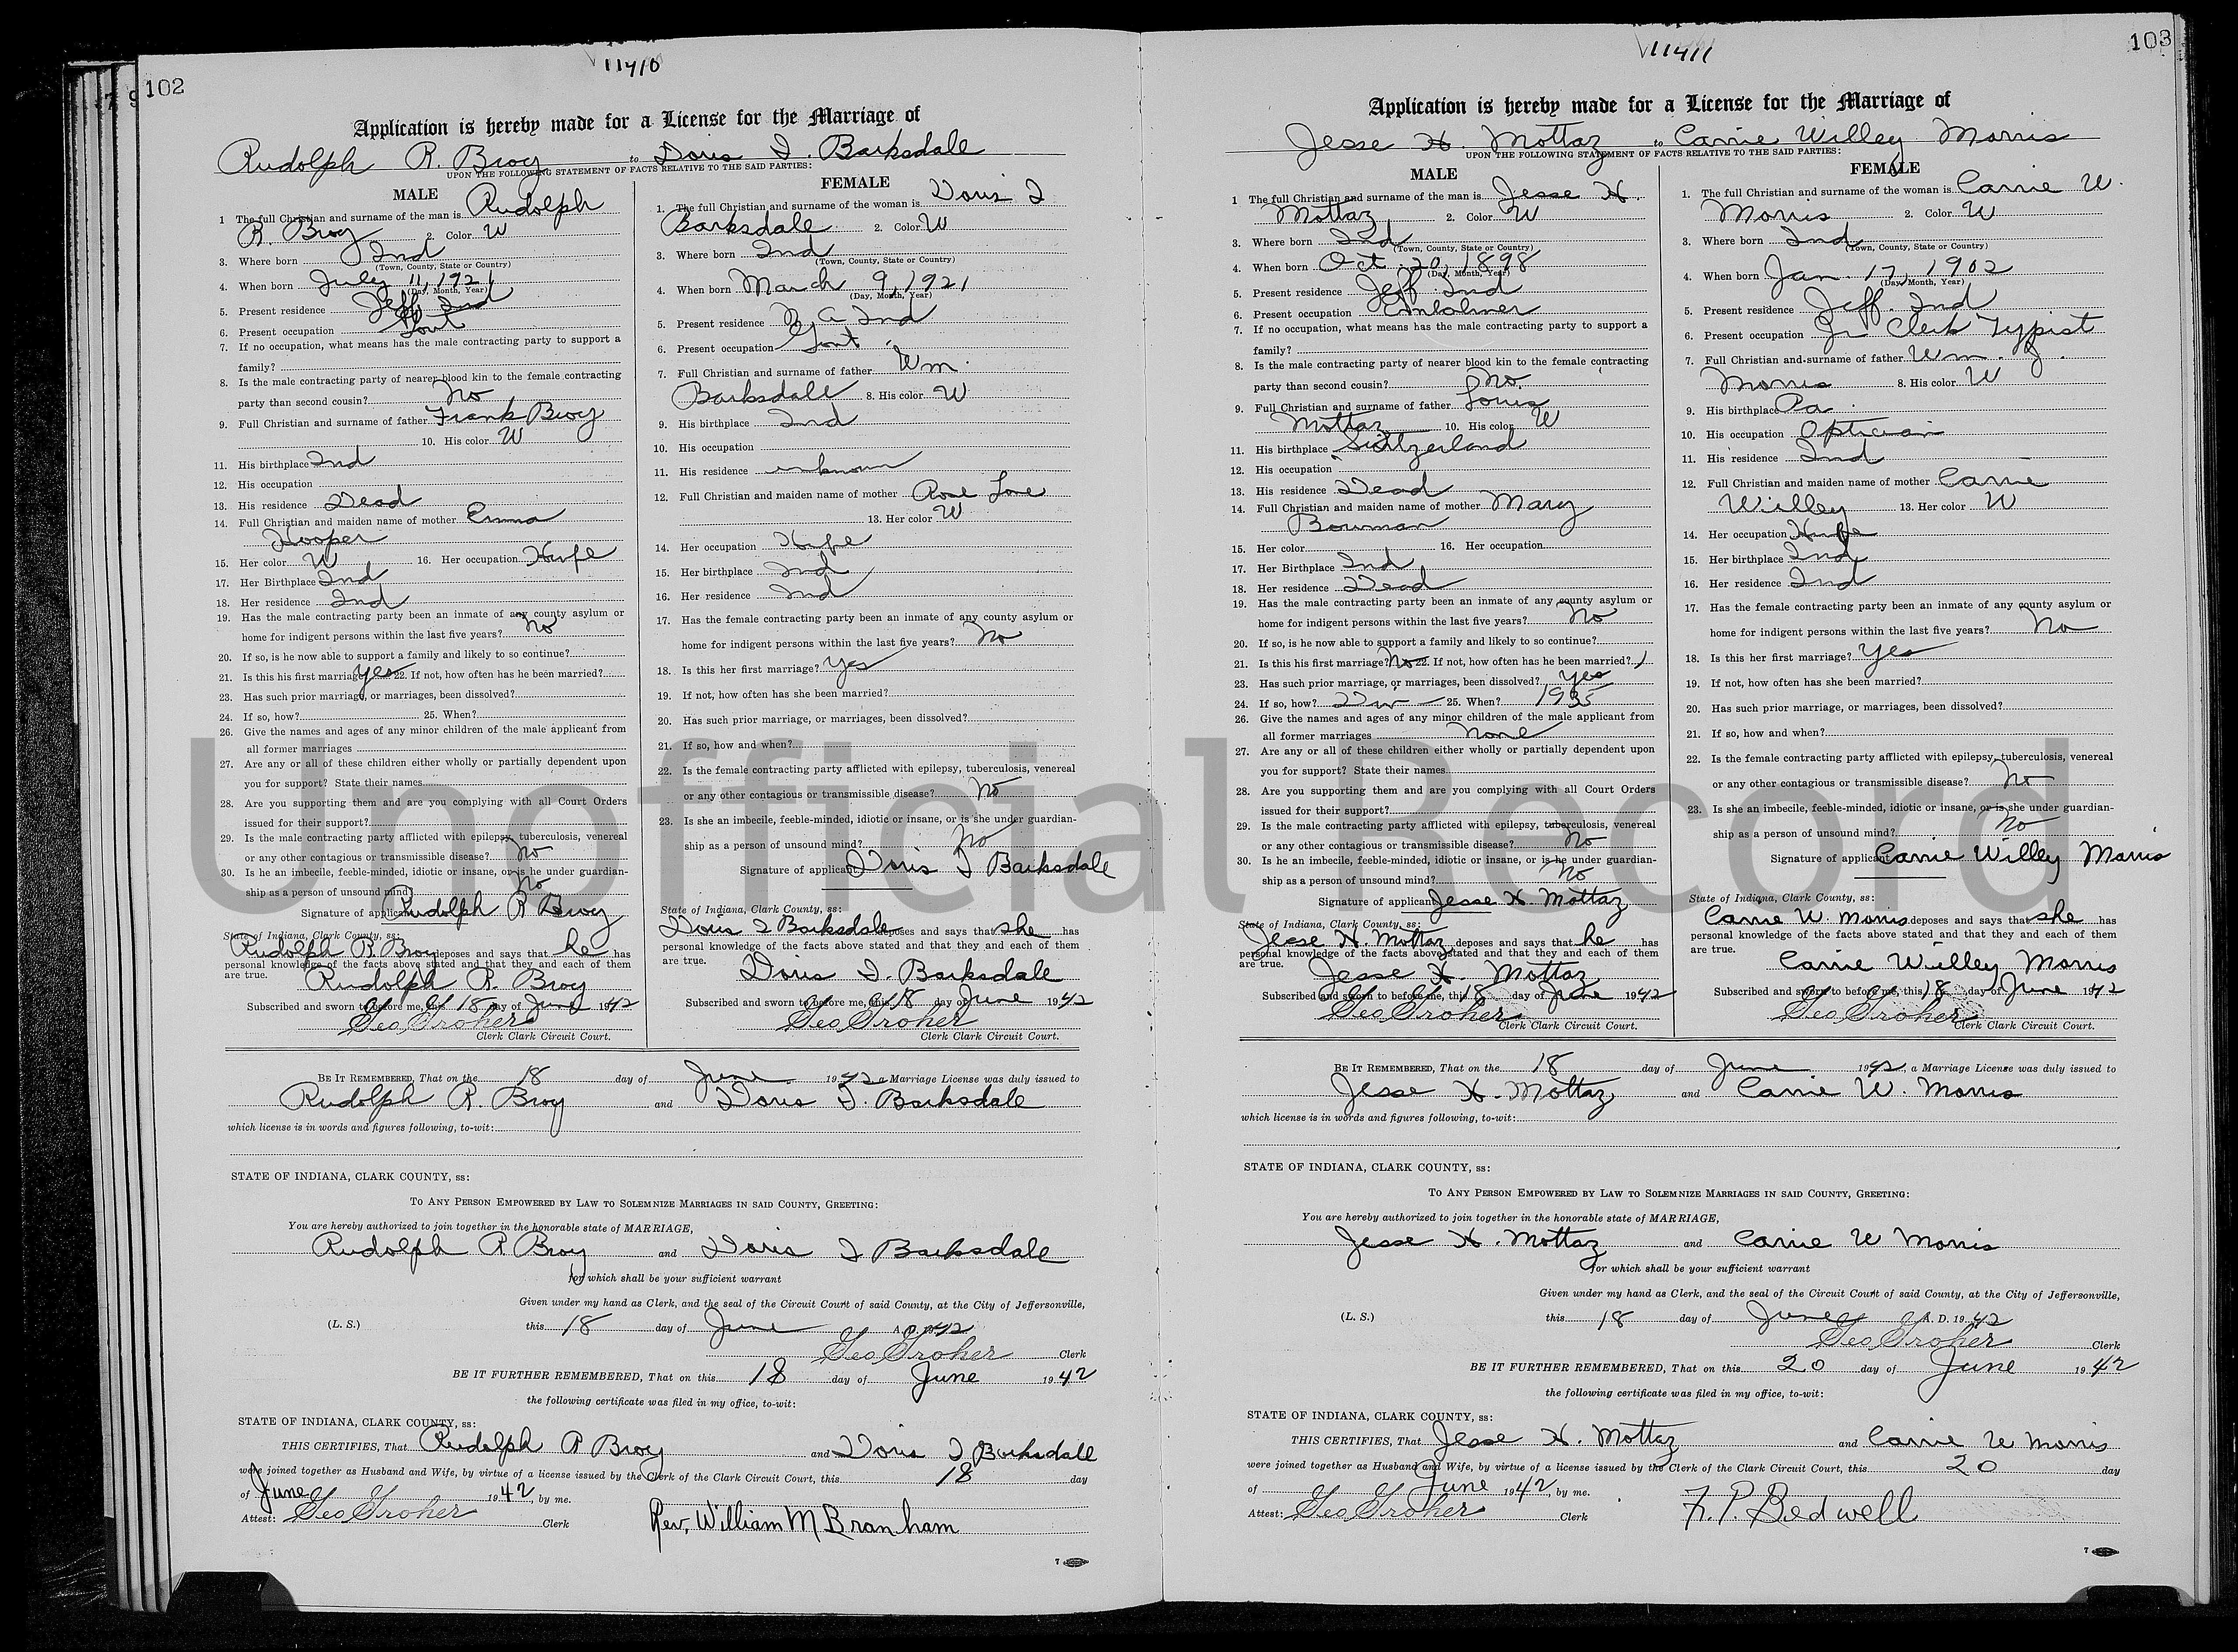 11410
102
Application is hereby made for a License for the Marriage of
Rudolph R. Broy to Doris I. Barksdale
UPON THE FOLLOWING STATEMENT OF FACTS RELATIVE TO THE SAID PARTIES:
MALE
1 The full Christian and surname of the man is Rudolph
R. Broy 2. Color W
3. Where born Ind
(Town, County, State or Country)
4. When born July 11, 1921
(Day, Month, Year)
5. Present residence Jeff Ind
6. Present occupation Govt
7. If no occupation, what means has the male contracting party to support a
family?
8. Is the male contracting party of nearer blood kin to the female contracting
party than second cousin? No
9. Full Christian and surname of father Frank Broy
10. His color W
11. His birthplace Ind
12. His occupation
13. His residence Dead
14. Full Christian and maiden name of mother Emma
Hooper
15. Her color W 16. Her occupation Hwfe
17. Her Birthplace Ind
18. Her residence Ind
19. Has the male contracting party been an inmate of any county asylum or
home for indigent persons within the last five years? No
20. If so, is he now able to support a family and likely to so continue?
21. Is this his first marriage? yes 22. If not, how often has he been married?
23. Has such prior marriage, or marriages, been dissolved?
24. If so, how? 25. When?
26. Give the names and ages of any minor children of the male applicant from
all former marriages
27. Are any or all of these children either wholly or partially dependent upon
you for support? State their names
28. Are you supporting them and are you complying with all Court Orders
issued for their support?
29. Is the male contracting party afflicted with epilepsy, tuberculosis, venereal
or any other contagious or transmissible disease? No
30. Is he an imbecile, feeble-minded, idiotic or insane, or is he under guardian-
ship as a person of unsound mind? No
Signature of applicant Rudolph R Broy
State of Indiana, Clark County, ss:
Rudolph R. Broy deposes and says that he has
personal knowledge of the facts above stated and that they and each of them
are true.
Rudolph R. Broy
Subscribed and sworn to before me, this 18 day of June 1942
Geo Groher
Clerk Clark Circuit Court.
FEMALE
1. The full Christian and surname of the woman is Doris I
Barksdale 2. Color W
3. Where born Ind
(Town, County, State or Country)
4. When born March 9, 1921
(Day, Month, Year)
5. Present residence N A Ind
6. Present occupation Govt
7. Full Christian and surname of father Wm.
Barksdale 8. His color W
9. His birthplace Ind
10. His occupation
11. His residence unknown
12. Full Christian and maiden name of mother Rose Love
13. Her color W
14. Her occupation Hwfe
15. Her birthplace Ind
16. Her residence Ind
17. Has the female contracting party been an inmate of any county asylum or
home for indigent persons within the last five years? No
18. Is this her first marriage? yes
19. If not, how often has she been married?
20. Has such prior marriage, or marriages, been dissolved?
21. If so, how and when?
22. Is the female contracting party afflicted with epilepsy, tuberculosis, venereal
or any other contagious or transmissible disease? No
23. Is she an imbecile, feeble-minded, idiotic or insane, or is she under guardian-
ship as a person of unsound mind? No
Signature of applicant Doris I Barksdale
State of Indiana, Clark County, ss:
Doris I Barksdale deposes and says that she has
personal knowledge of the facts above stated and that they and each of them
are true.
Doris I. Barksdale
Subscribed and sworn to before me, this 18 day of June 1942
Geo Groher
Clerk Clark Circuit Court.
BE IT REMEMBERED, That on the 18 day of June 1942 a Marriage License was duly issued to
Rudolph R. Broy and Doris I. Barksdale
which license is in words and figures following, to-wit:
STATE OF INDIANA, CLARK COUNTY, ss:
TO ANY PERSON EMPOWERED BY LAW TO SOLEMNIZE MARRIAGES IN SAID COUNTY, GREETING:
You are hereby authorized to join together in the honorable state of MARRIAGE,
Rudolph R Broy and Doris I Barksdale
for which shall be your sufficient warrant
Given under my hand as Clerk, and the seal of the Circuit Court of said County, at the City of Jeffersonville,
(L. S.) this 18 day of June A. D. 1942
Geo Groher Clerk
BE IT FURTHER REMEMBERED, That on this 18 day of June 1942
the following certificate was filed in my office, to-wit:
STATE OF INDIANA, CLARK COUNTY, ss:
THIS CERTIFIES, That Rudolph R Broy and Doris I Barksdall
were joined together as Husband and Wife, by virtue of a license issued by the Clerk of the Clark Circuit Court, this 18 day
of June 1942, by me.
Attest: Geo Groher Clerk Rev. William M Branham
7
11411
103
Application is hereby made for a License for the Marriage of
Jesse H. Mottaz to Carrie Willey Morris
UPON THE FOLLOWING STATEMENT OF FACTS RELATIVE TO THE SAID PARTIES:
MALE
1 The full Christian and surname of the man is Jesse H.
Mottaz 2. Color W
3. Where born Ind
(Town, County, State or Country)
4. When born Oct. 20, 1898
(Day, Month, Year)
5. Present residence Jeff. Ind
6. Present occupation Embalmer
7. If no occupation, what means has the male contracting party to support a
family?
8. Is the male contracting party of nearer blood kin to the female contracting
party than second cousin? No
9. Full Christian and surname of father Louis
Mottaz 10. His color W
11. His birthplace Switzerland
12. His occupation
13. His residence Dead
14. Full Christian and maiden name of mother Mary
Bowman
15. Her color 16. Her occupation
17. Her Birthplace Ind
18. Her residence Dead
19. Has the male contracting party been an inmate of any county asylum or
home for indigent persons within the last five years? No
20. If so, is he now able to support a family and likely to so continue?
21. Is this his first marriage? No 22. If not, how often has he been married? 1
23. Has such prior marriage, or marriages, been dissolved? yes
24. If so, how? Div 25. When? 1935
26. Give the names and ages of any minor children of the male applicant from
all former marriages None
27. Are any or all of these children either wholly or partially dependent upon
you for support? State their names
28. Are you supporting them and are you complying with all Court Orders
issued for their support?
29. Is the male contracting party afflicted with epilepsy, tuberculosis, venereal
or any other contagious or transmissible disease? No
30. Is he an imbecile, feeble-minded, idiotic or insane, or is he under guardian-
ship as a person of unsound mind? No
Signature of applicant Jesse H. Mottaz
State of Indiana, Clark County, ss:
Jesse H. Mottaz deposes and says that he has
personal knowledge of the facts above stated and that they and each of them
are true.
Jesse H. Mottaz
Subscribed and sworn to before me, this 18 day of June 1942
Geo Groher
Clerk Clark Circuit Court.
FEMALE
1. The full Christian and surname of the woman is Carrie W.
Morris 2. Color W
3. Where born Ind
(Town, County, State or Country)
4. When born Jan. 17, 1902
(Day, Month, Year)
5. Present residence Jeff. Ind
6. Present occupation Jr Clerk Typist
7. Full Christian and surname of father Wm. J.
Morris 8. His color W
9. His birthplace Pa.
10. His occupation Optician
11. His residence Ind
12. Full Christian and maiden name of mother Carrie
Willey 13. Her color W
14. Her occupation Hwfe
15. Her birthplace Ind
16. Her residence Ind
17. Has the female contracting party been an inmate of any county asylum or
home for indigent persons within the last five years? No
18. Is this her first marriage? Yes
19. If not, how often has she been married?
20. Has such prior marriage, or marriages, been dissolved?
21. If so, how and when?
22. Is the female contracting party afflicted with epilepsy, tuberculosis, venereal
or any other contagious or transmissible disease? No
23. Is she an imbecile, feeble-minded, idiotic or insane, or is she under guardian-
ship as a person of unsound mind? No
Signature of applicant Carrie Willey Morris
State of Indiana, Clark County, ss:
Carrie W. Morris deposes and says that she has
personal knowledge of the facts above stated and that they and each of them
are true.
Carrie Willey Morris
Subscribed and sworn to before me, this 18 day of June 1942
Geo Groher
Clerk Clark Circuit Court.
BE IT REMEMBERED, That on the 18 day of June 1942, a Marriage License was duly issued to
Jesse H. Mottaz and Carrie W. Morris
which license is in words and figures following, to-wit:
STATE OF INDIANA, CLARK COUNTY, ss:
TO ANY PERSON EMPOWERED BY LAW TO SOLEMNIZE MARRIAGES IN SAID COUNTY, GREETING:
You are hereby authorized to join together in the honorable state of MARRIAGE,
Jesse H. Mottaz and Carrie W Morris
for which shall be your sufficient warrant
Given under my hand as Clerk, and the seal of the Circuit Court of said County, at the City of Jeffersonville,
(L. S.) this 18 day of June A. D. 1942
Geo Groher Clerk
BE IT FURTHER REMEMBERED, That on this 20 day of June 1942
the following certificate was filed in my office, to-wit:
STATE OF INDIANA, CLARK COUNTY, ss:
THIS CERTIFIES, That Jesse H. Mottaz and Carrie W Morris
were joined together as Husband and Wife, by virtue of a license issued by the Clerk of the Clark Circuit Court, this 20 day
of June 1942, by me.
Attest: Geo Groher Clerk F. P. Bedwell
7
Unofficial Record